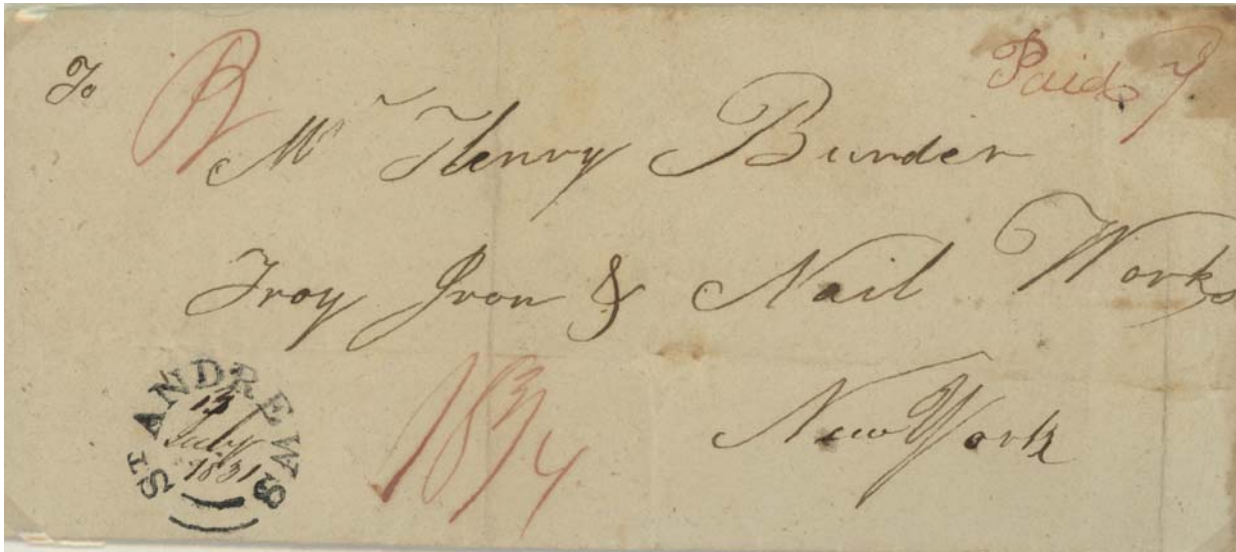 To
Paid 7
Mr Henry Burden
Troy Iron & Nail Works
New York
18¾
ST ANDREWS
13
July
1831